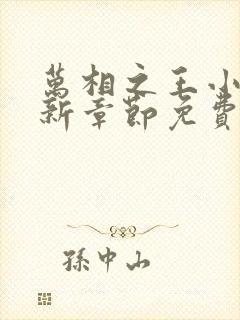 萬相之王小
新章節免費
孫中山